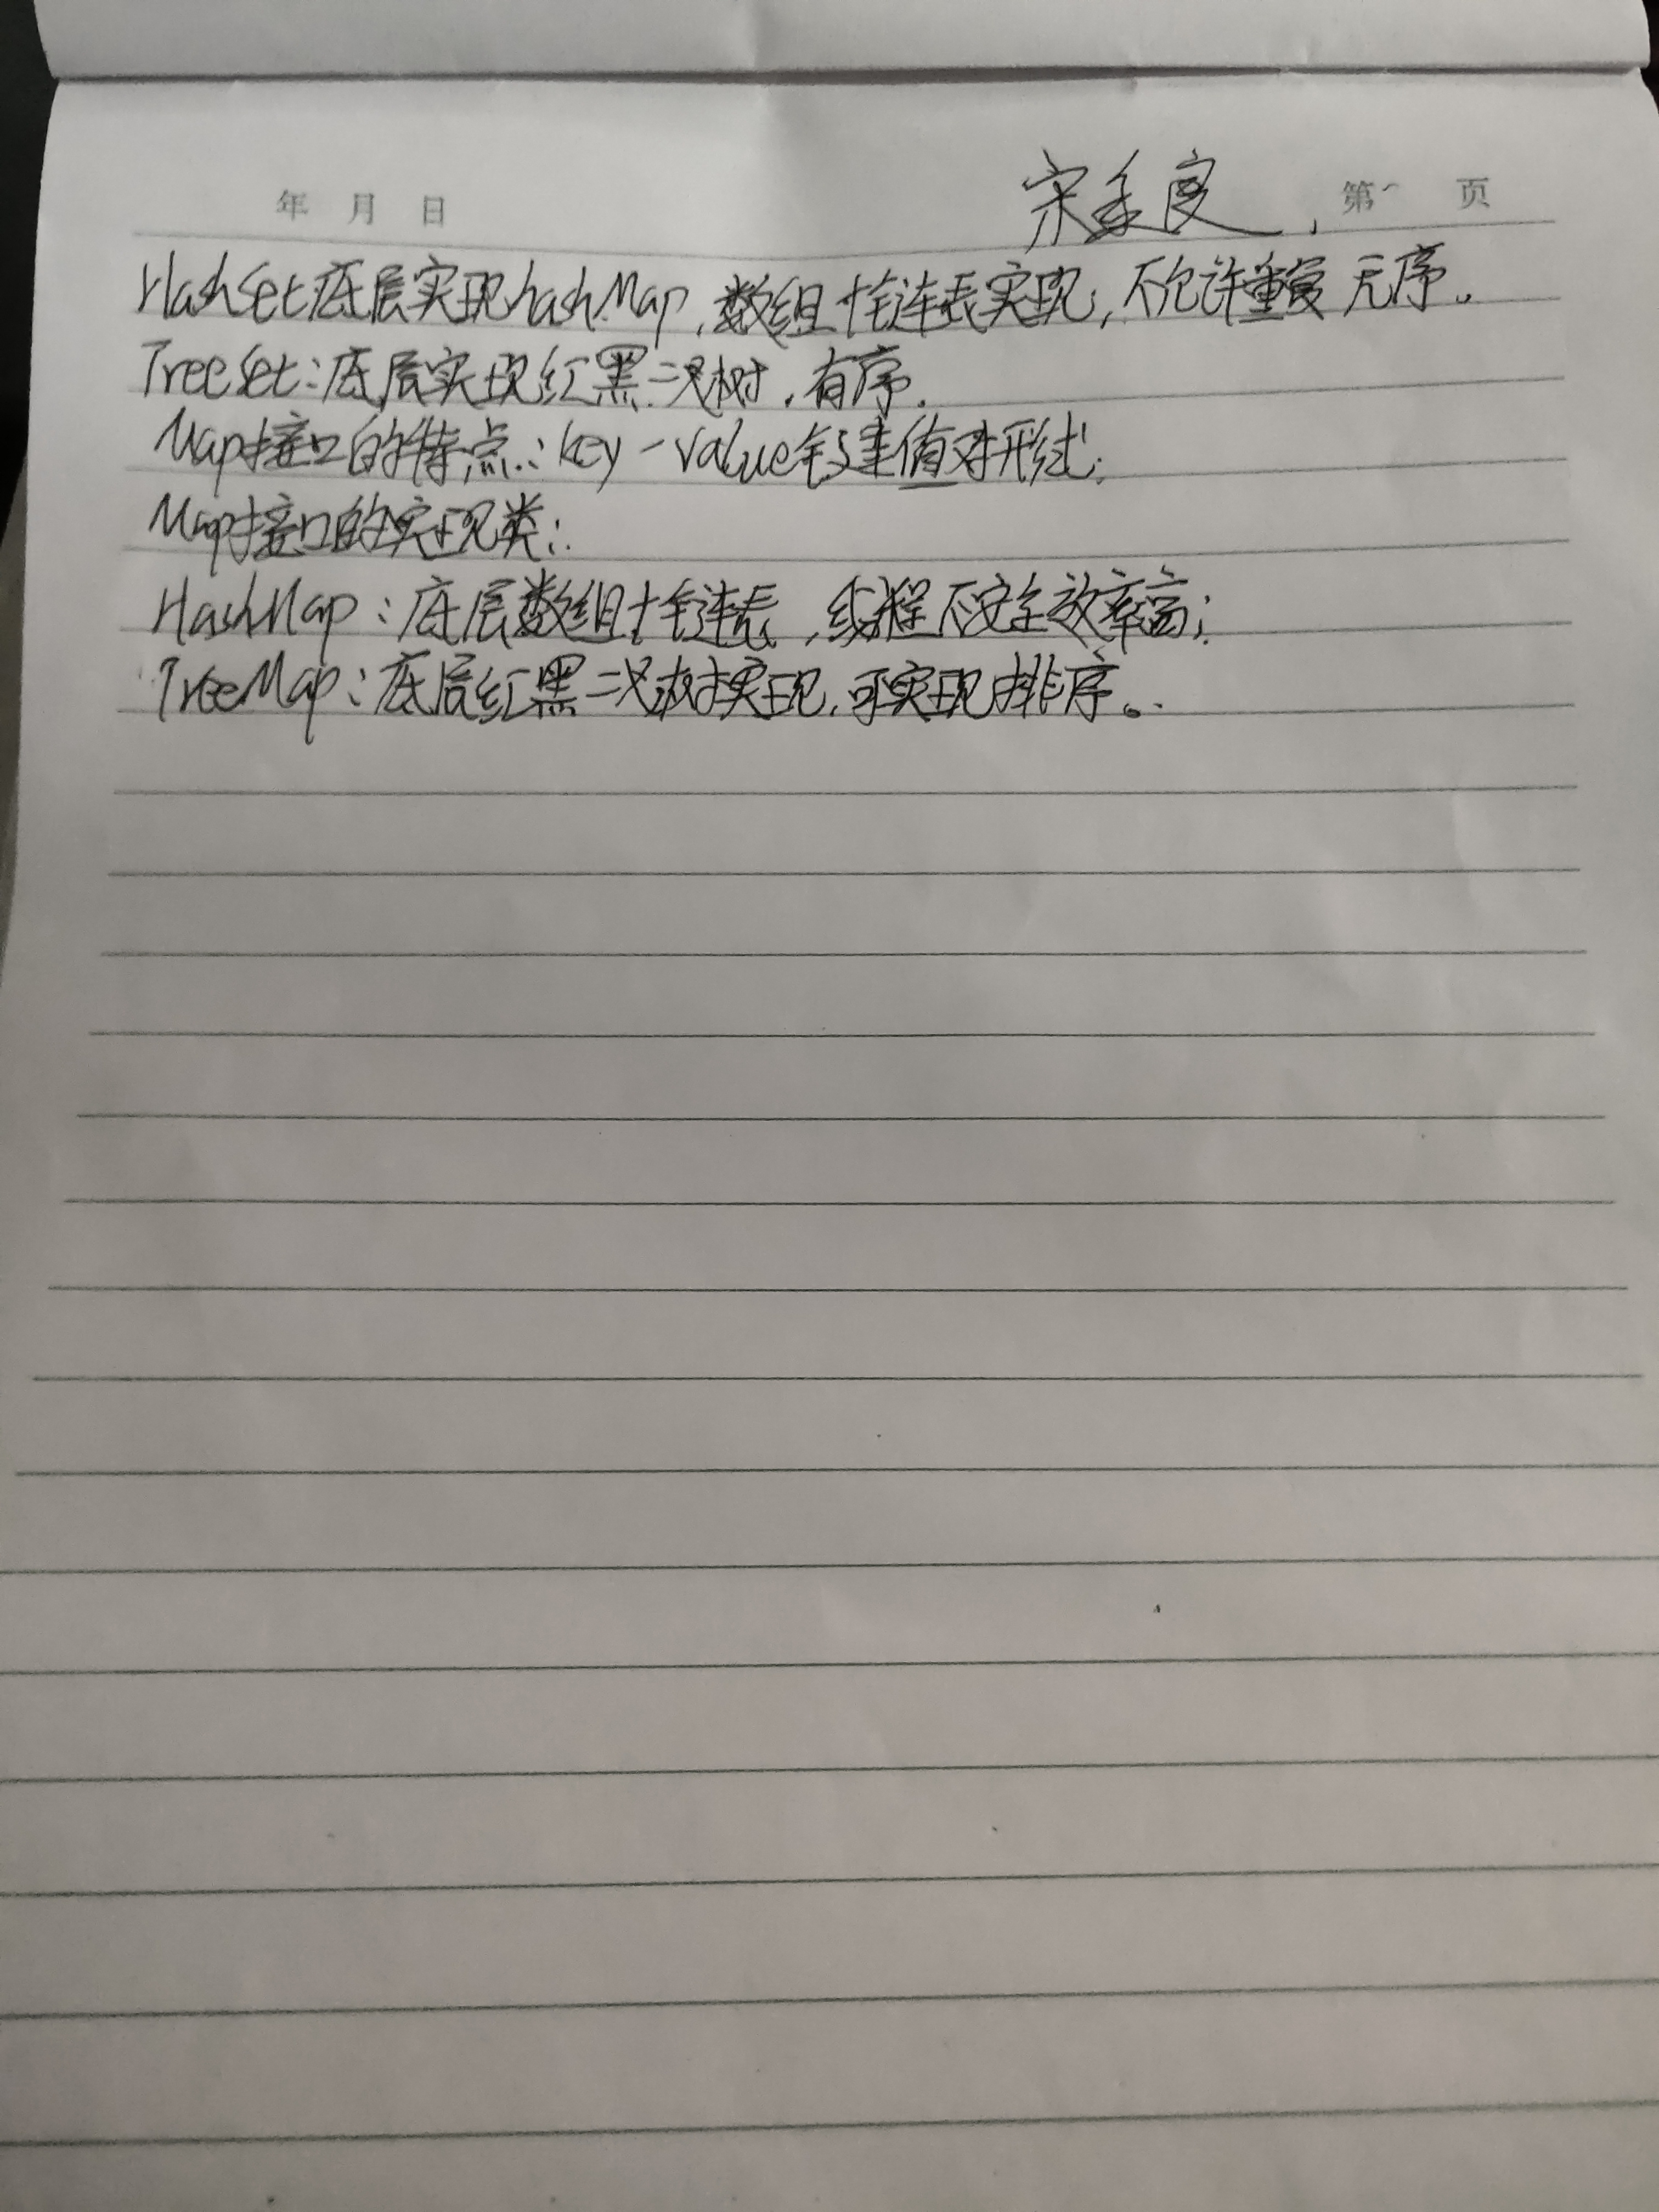 年 月 日 宋 良 第 页
HashSet底层实现hashMap,数组+链表实现,不允许重复 无序。
TreeSet:底层实现红黑二叉树,有序.
Map接口的特点:key-value键值对形式;
Map接口的实现类:
HashMap:底层数组+链表,线程不安全效率高;
TreeMap:底层红黑二叉树实现,可实现排序。